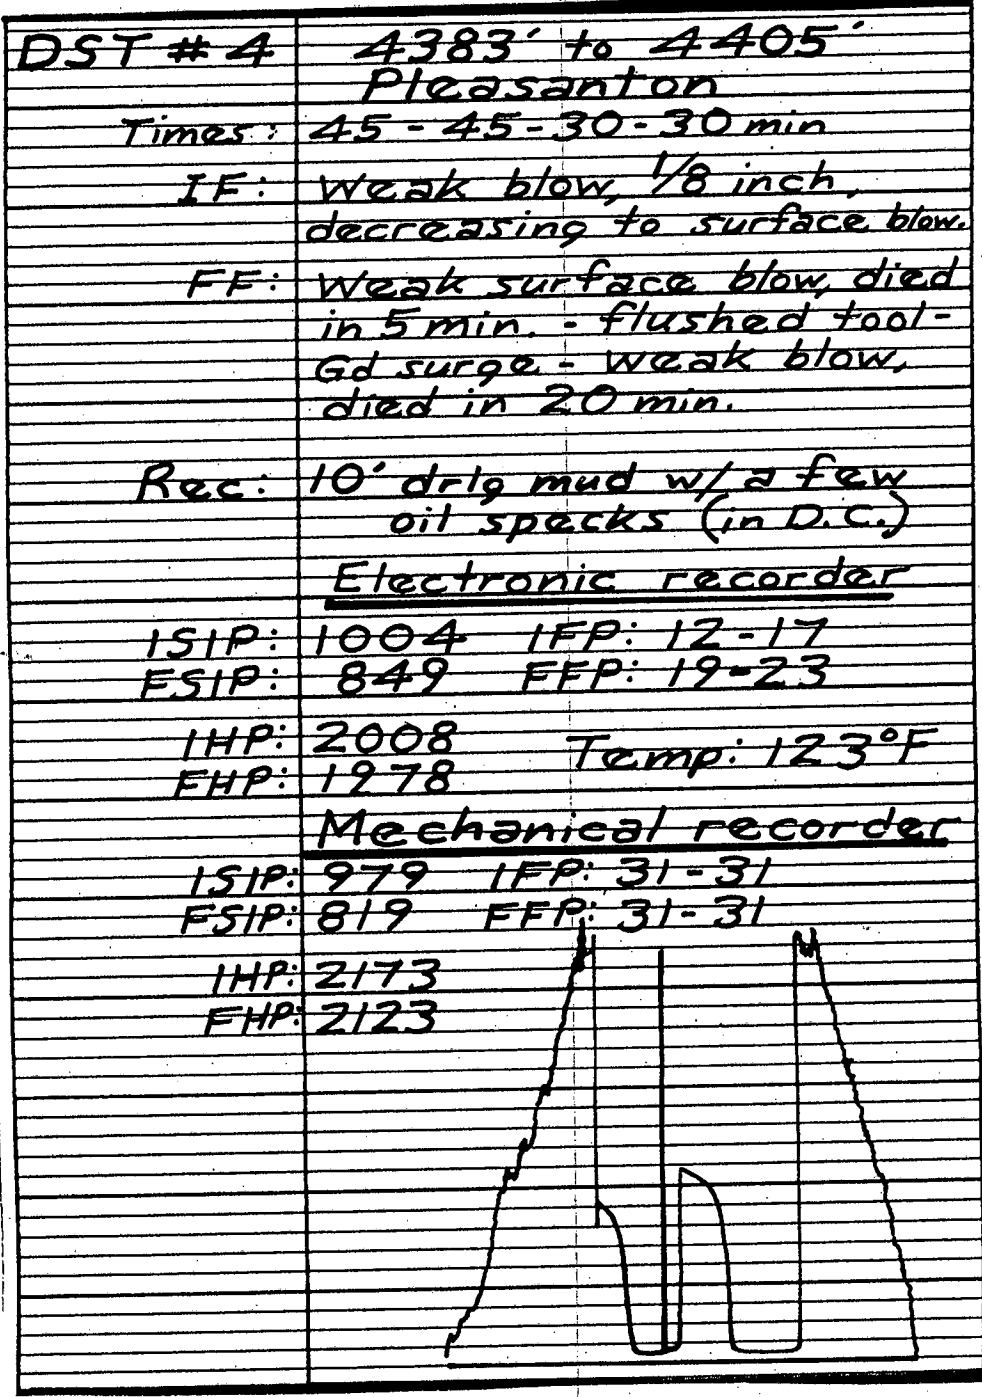 DST # 4 4383' to 4405'
Pleasanton
Times: 45 - 45 - 30 - 30 min
IF: Weak blow, 1/8 inch,
decreasing to surface blow.
FF: Weak surface blow, died
in 5 min. - flushed tool -
Gd surge - weak blow,
died in 20 min.
Rec: 10' drlg mud w/ a few
oil specks (in D.C.)
Electronic recorder
ISIP: 1004 IFP: 12-17
FSIP: 849 FFP: 19-23
IHP: 2008 Temp: 123°F
FHP: 1978
Mechanical recorder
ISIP: 979 IFP: 31-31
FSIP: 819 FFP: 31-31
IHP: 2173
FHP: 2123